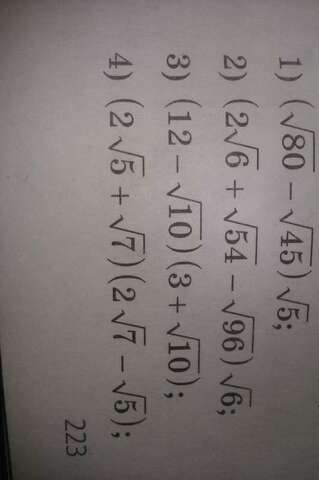 1) (√80 − √45)√5;
2) (2√6 + √54 − √96)√6;
3) (12 − √10)(3 + √10);
4) (2√5 + √7)(2√7 − √5);
223